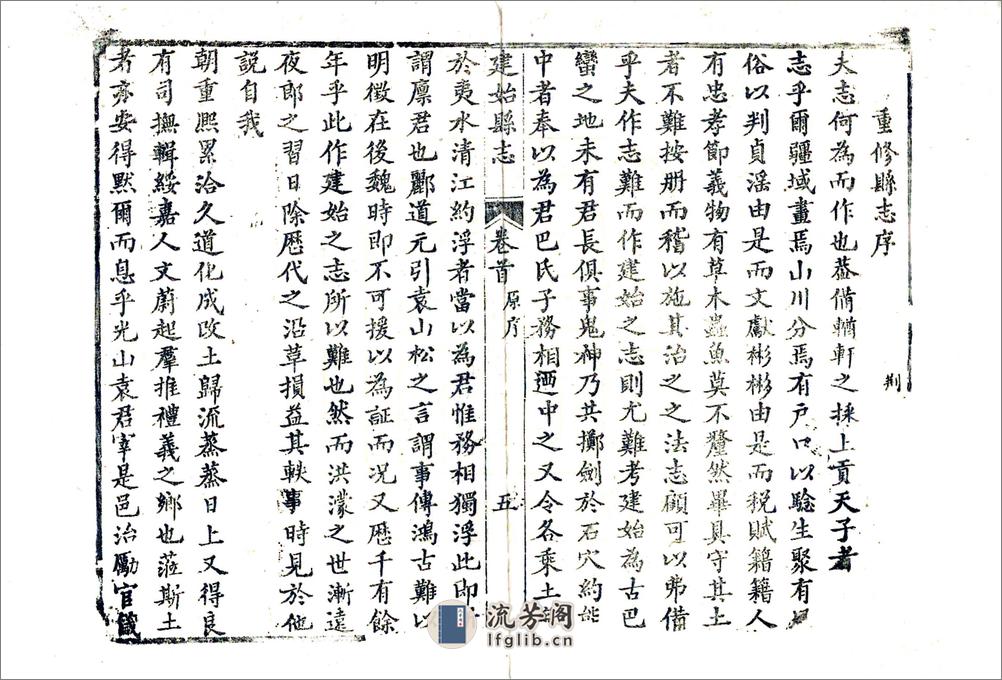 重修縣志序
荆
夫志何為而作也葢備輶軒之採上貢天子者
志乎爾疆域畫焉山川分焉有戶口以騐生聚有
俗以判貞淫由是而文獻彬彬由是而稅賦籍籍人
有忠孝節義物有草木蟲魚莫不釐然畢具守其土
者不難按册而稽以施其治之之法志顧可以弗備
乎夫作志難而作建始之志則尤難考建始為古巴
蠻之地未有君長俱事鬼神乃共擲劍於石穴約能
中者奉以為君巴氏子務相廼中之又令各乘土
建始縣志
卷首
原序
五
於夷水清江約浮者當以為君惟務相獨浮此即
謂廪君也酈道元引袁山松之言謂事傳鴻古難以
明徵在後魏時即不可援以為証而况又歴千有餘
年乎此作建始之志所以難也然而洪濛之世漸遠
夜郎之習日除歴代之沿革損益其軼事時見於他
說自我
朝重熙累洽久道化成改土歸流蒸蒸日上又得良
有司撫輯綏嘉人文蔚起羣推禮義之鄉也蒞斯土
者亦安得默爾而息乎光山袁君宰是邑治勵官箴
流芳阁
lfglib.cn